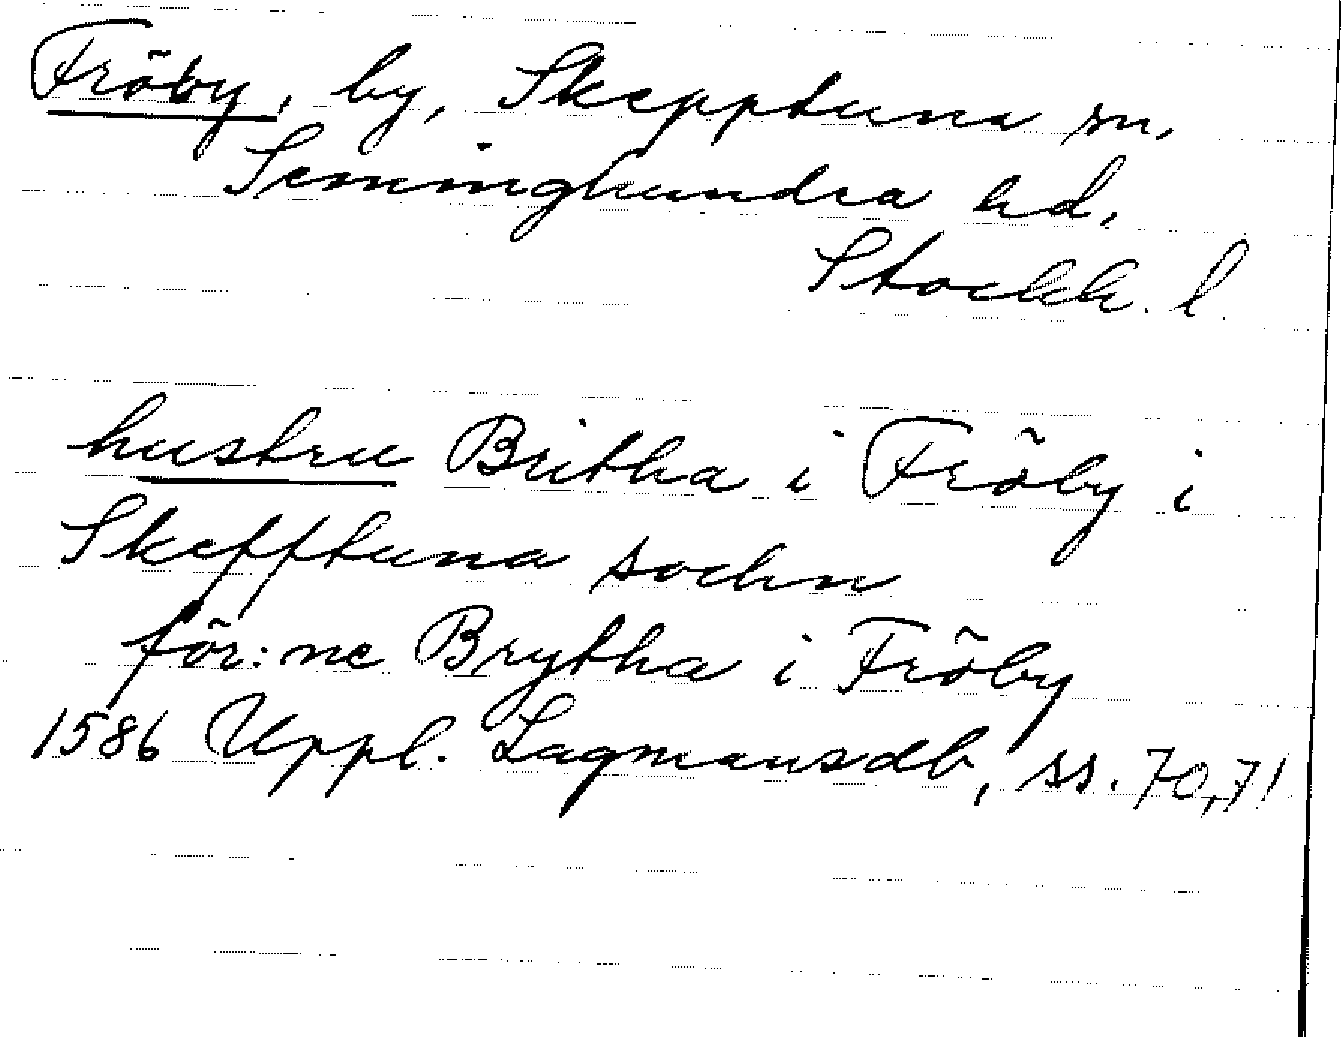 Fröby, by, Skepptuna sn,
Seminghundra hd,
Stockh. l.
hustru Britha i Fröby i
Skefftuna sochn
för:ne Brytha i Fröby
1586 Uppl. Lagmansdb, ss. 70,71